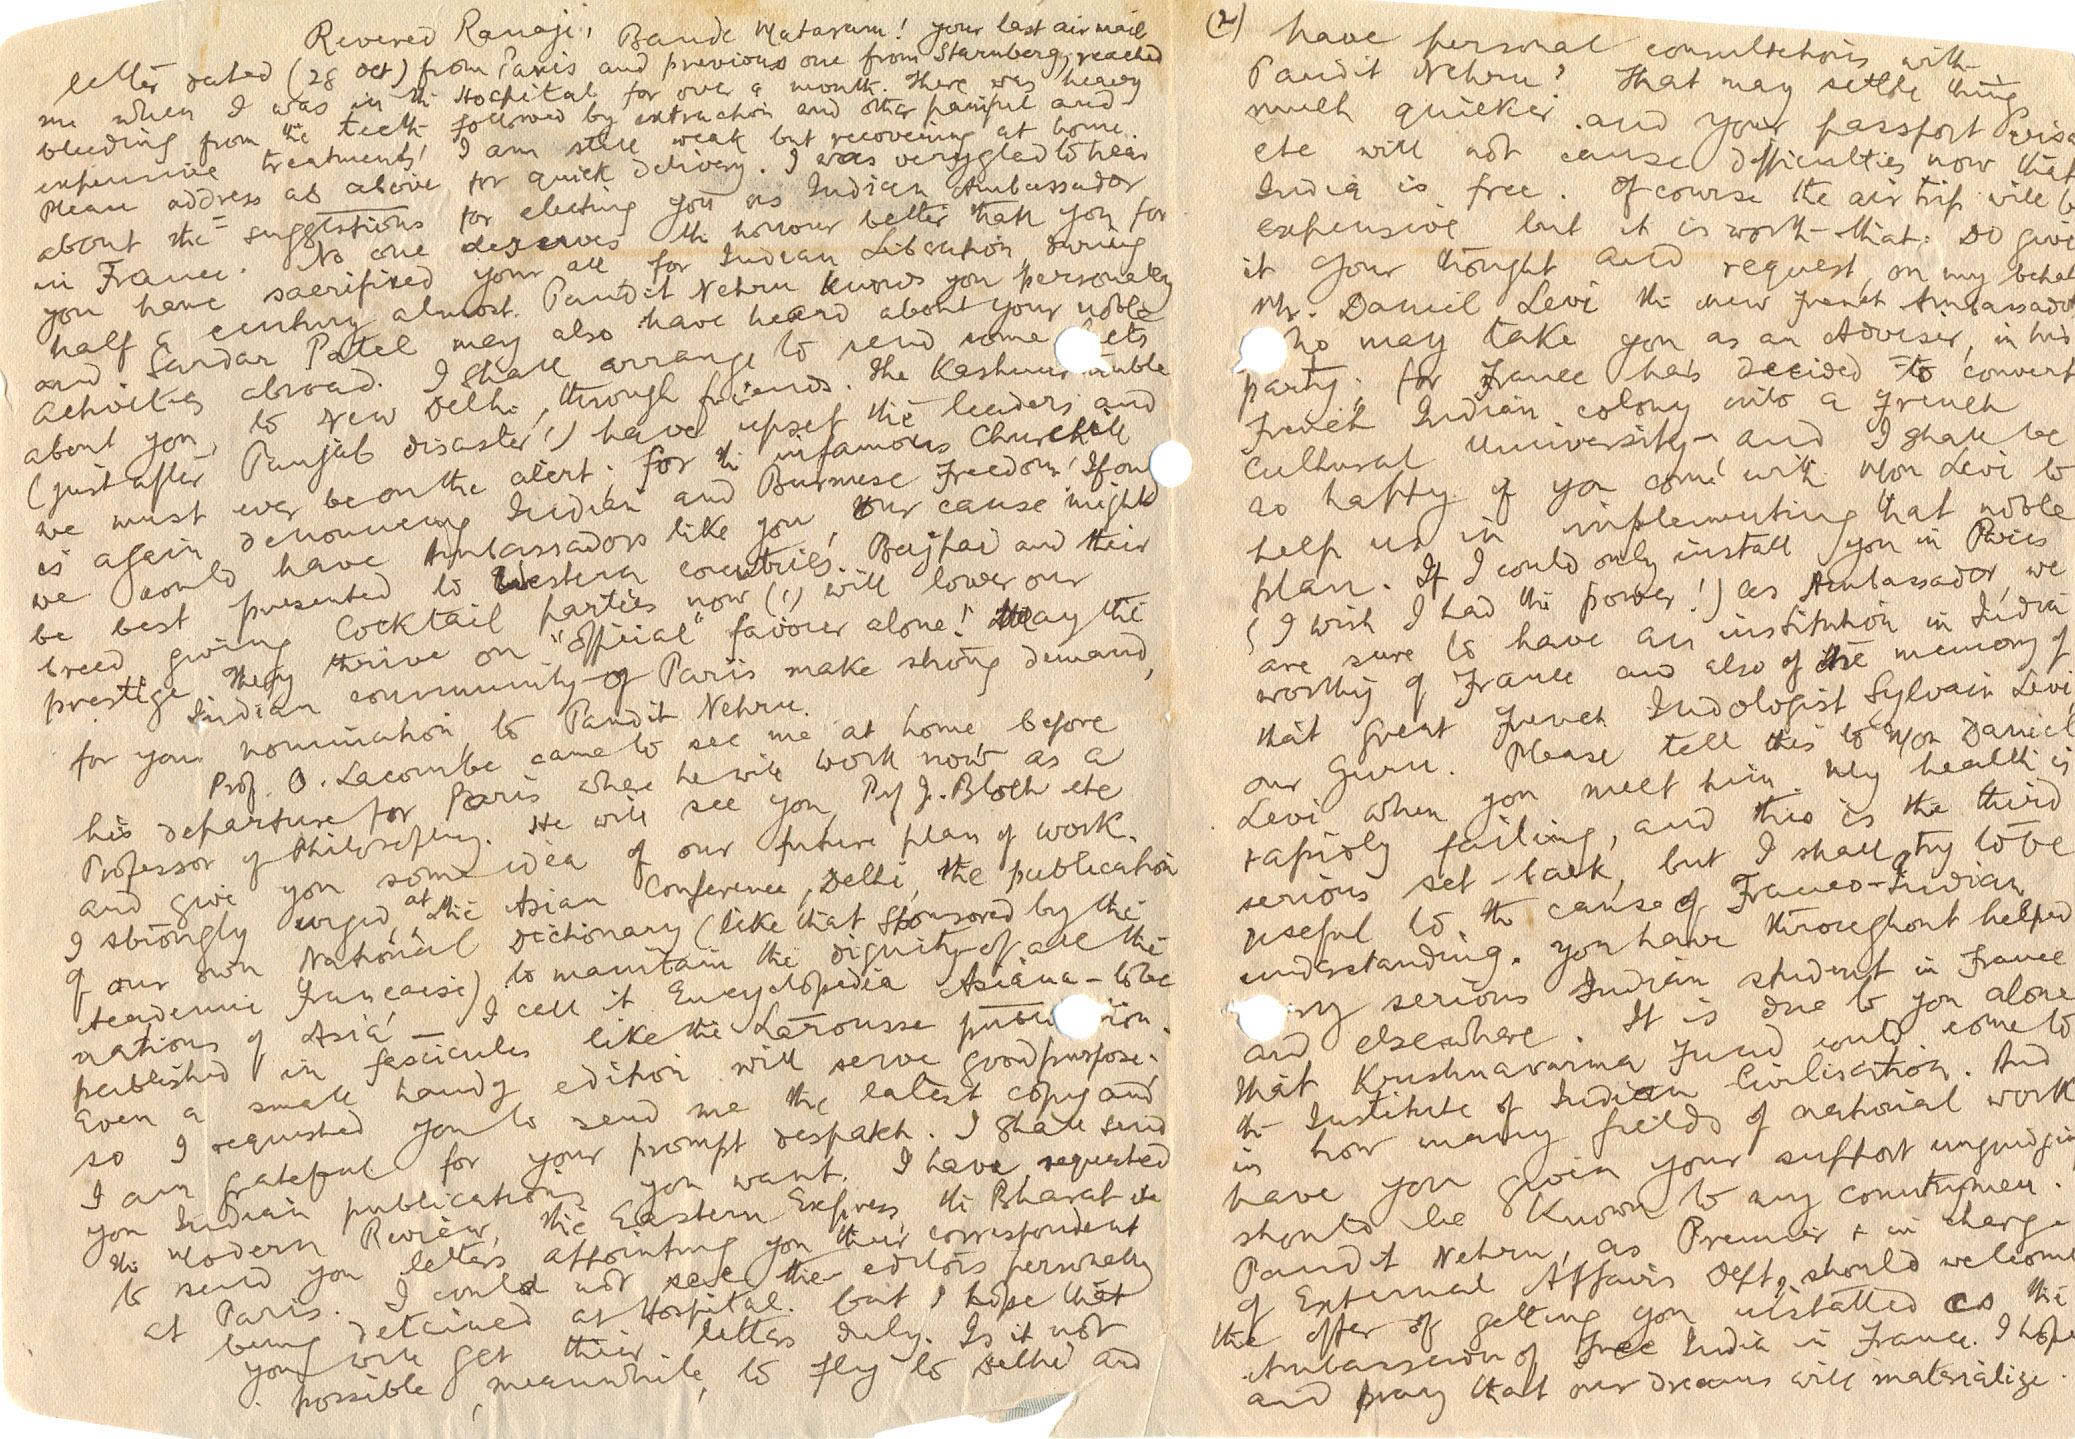 Revered Ranaji, Bande Mataram! your last air mail
letter dated (28 Oct) from Paris and previous one from Starnberg, reached
me when I was in the Hospital for over a month. There was heavy
bleeding from the teeth followed by extraction and other painful and
expensive treatments! I am still weak but recovering at home.
Please address as above for quick delivery. I was very gled to hear
about the suggestions for electing you as Indian Ambassador
in France. No one deserves the honour better than you for
you have sacrifized your all for Indian Liberation during
half a century almost. Pandit Nehru knows you personally
and Sardar Patel may also have heard about your noble
activities abroad. I shall arrange to send some ets
about you, to New Delhi, through friends. The Kashmir uble
(just after Punjab disaster!) have upset the leaders and
we must ever be on the alert; for the infamous Churchill
is again denouncing Indian and Burmese Freedom! If only
we could have Ambassadors like you, our cause might
be best presented to Western countries. Bajpai and their
breed giving Cocktail parties now (!) will lower our
prestige. They thrive on "official" favour alone! May the
Indian community of Paris make strong demand,
for your nomination, to Pandit Nehru.
Prof. O. Lacombe came to see me at home before
his departure for Paris where he will work now as a
Professor of Philosophy. He will see you, Prof J. Bloch etc
and give you some idea of our future plan of work.
I strongly urged, at the Asian Conference, Delhi, the publication
of our own National Dictionary (like that sponsored by the
Academie Francaise) to maintain the dignity of all the
nations of Asia — I call it Encyclopedia Asiana - to be
published in fascicules like the Larousse publi ion.
Even a small handy edition will serve good purpose;
so I requested you to send me the latest copy and
I am grateful for your prompt despatch. I shall send
you Indian publications you want. I have requested
the Modern Review, the Eastern Express, the Bharat etc
to send you letters appointing you their correspondent
at Paris. I could not see the editors personally
being detained at Hospital. but I hope that
you will get their letters duly. Is it not
possible, meanwhile, to fly to Delhi and
(2) have personal consultations with
Pandit Nehru? That may settle things
much quicker and your passport & visa
etc will not cause difficulties now that
India is free. Of course the air trip will b
expensive but it is worth that. Do give
it your thought and request, on my behal
Mr. Daniel Levi the new French Ambassador
ho may take you as an Adviser, in his
party; for France has decided to convert
French Indian colony into a French
Cultural University and I shall be
so happy if you come with Mon Levi to
help us in implementing that noble
plan. If I could only install you in Paris
(I wish I had the power!) as Ambassador, we
are sure to have an institution in India
worthy of France and also of the memory of
that great French Indologist Sylvain Levi,
our Guru. Please tell this to Mon Daniel
Levi when you meet him. My health is
rapidly failing, and this is the third
serious set-back, but I shall try to be
useful to the cause of Franco-Indian
understanding. you have throughout helped
ry serious Indian student in France
and elsewhere. It is due to you alone
that Krishnavarma Fund could come to
the Institute of Indian Civilisation. And
in how many fields of national work
have you given your support ungrudgin
should be known to my countrymen.
Pandit Nehru, as Premier & in charge
of External Affairs Dept, should welcome
the offer of getting you installed as the
Ambassador of Free India in France. I hope
and pray that our dreams will materialize.